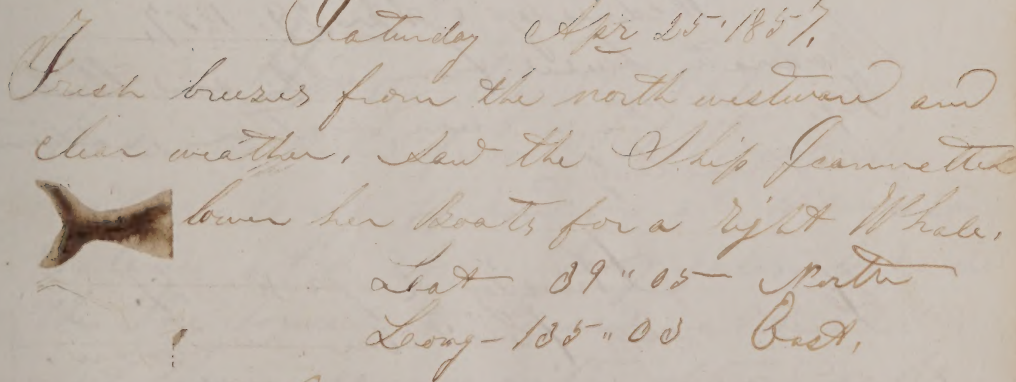 Saturday Apr 25 1857.
Fresh breezes from the north westward and
clear weather. Saw the Ship Jeannette
lower her Boats for a right Whale.
Leat 39 " 05 North
Leong - 135 " 03 East.